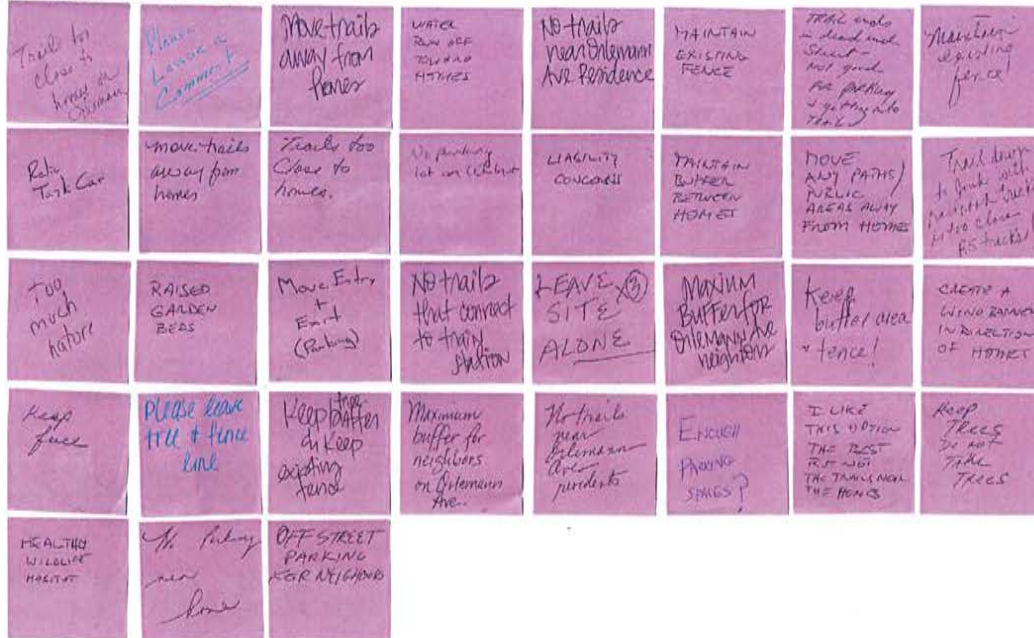 Trails too
close to
homes on
Orlemann
Please
Leave a
Comment
Move trails
away from
homes
WATER
RUN OFF
TOWARD
HOMES
No trails
near Orlemann
Ave Residence
MAINTAIN
EXISTING
FENCE
TRAIL ends
in dead end
Street -
not good
for parking
+ getting into
Trail
Maintain
existing
fence!
Relic
Tank Car
move trails
away from
homes
Trails too
Close to
homes.
No parking
lot on
LIABILITY
CONCERNS
MAINTAIN
BUFFER
BETWEEN
HOMES
MOVE
ANY PATHS/
PUBLIC
AREAS AWAY
FROM HOMES
Trail down
to
is too close
RR tracks
Too
much
nature
RAISED
GARDEN
BEDS
Move Entry
+
Exit
(Parking)
No trails
that connect
to train
station
LEAVE x3
SITE
ALONE
Maxium
Buffer for
Orlemann Ave
neighbors
Keep
buffer area
+ fence!
CREATE A
WIND BARRIER
IN DIRECTION
OF HOMES
Keep
fence
Please leave
tree + fence
line
Keep tree
buffer
Keep
existing
fence
Maximum
buffer for
neighbors
on Orlemann
Ave.
No trails
near
Orlemann
Ave
ENOUGH
PARKING
SPACES?
I LIKE
THIS OPTION
THE BEST
BUT NOT
THE TRAILS NEAR
THE HOMES
Keep
Trees
Do not
Take
Trees
HEALTHY
WILDLIFE
HABITAT
No Parking
near
homes
OFF STREET
PARKING
FOR NEIGHBORS